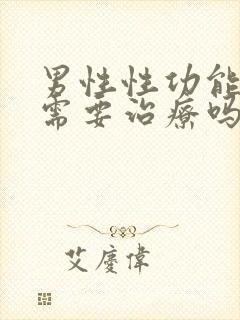 男性性功能
需要治療吗
艾慶偉